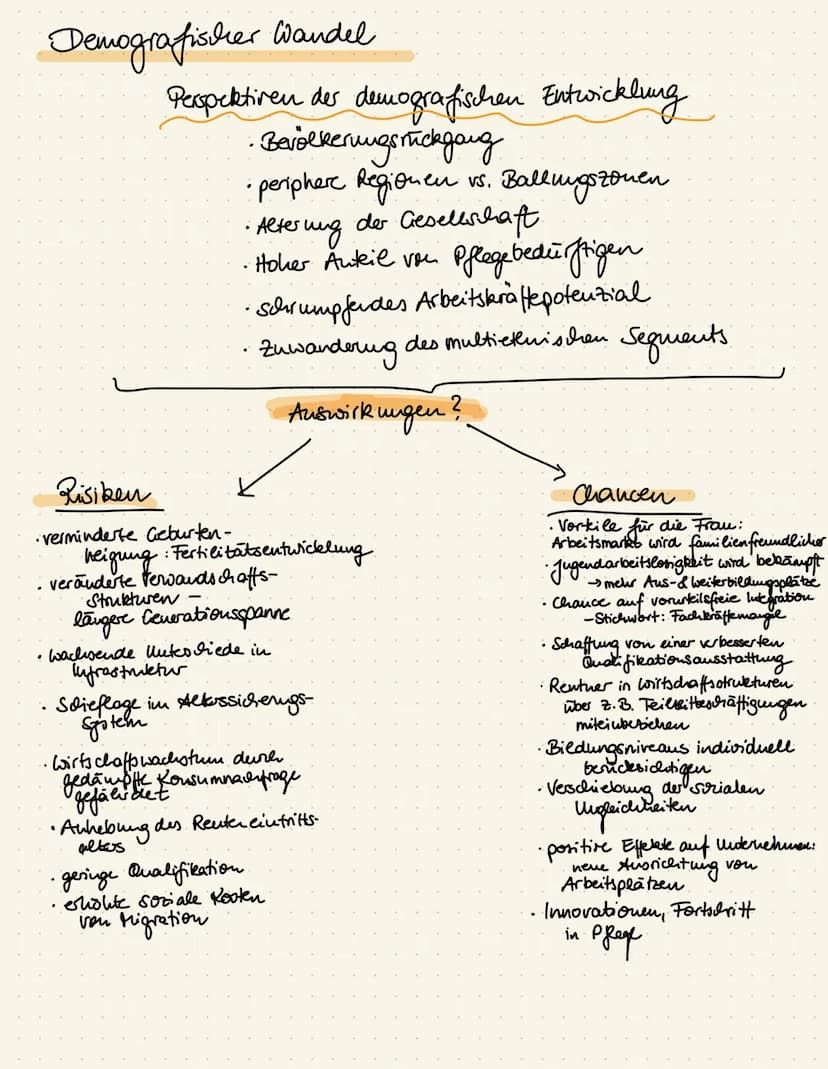 Demografischer Wandel
Perspektiven der demografischen Entwicklung
· Bevölkerungsrückgang
· periphere Regionen vs. Ballungszonen
· Alterung der Gesellschaft
· Hoher Anteil von Pflegebedürftigen
· schrumpfendes Arbeitskräftepotenzial
· Zuwanderung des multiethnischen Segments
Auswirkungen?
Risiken
· verminderte Geburten-
neigung : Fertilitätsentwicklung
· veränderte Verwandschafts-
strukturen –
längere Generationsspanne
· wachsende Unterschiede in
Infrastruktur
· Schieflage im Alterssicherungs-
system
· Wirtschaftswachstum durch
gedämpfte Konsumnachfrage
gefährdet
· Anhebung des Renteneintritts-
alters
· geringe Qualifikation
· erhöhte soziale Kosten
von Migration
Chancen
· Vorteile für die Frau:
Arbeitsmarkt wird familienfreundlicher
· Jugendarbeitslosigkeit wird bekämpft
→ mehr Aus- & Weiterbildungsplätze
· Chance auf vorurteilsfreie Integration
– Stichwort: Fachkräftemangel
· Schaffung von einer verbesserten
Qualifikationsausstattung
· Rentner in Wirtschaftsstrukturen
über z.B. Teilzeitbeschäftigungen
miteinbeziehen
· Bildungsniveaus individuell
berücksichtigen
· Verschiebung der sozialen
Ungleichheiten
· positive Effekte auf Unternehmen:
neue Ausrichtung von
Arbeitsplätzen
· Innovationen, Fortschritt
in Pflege